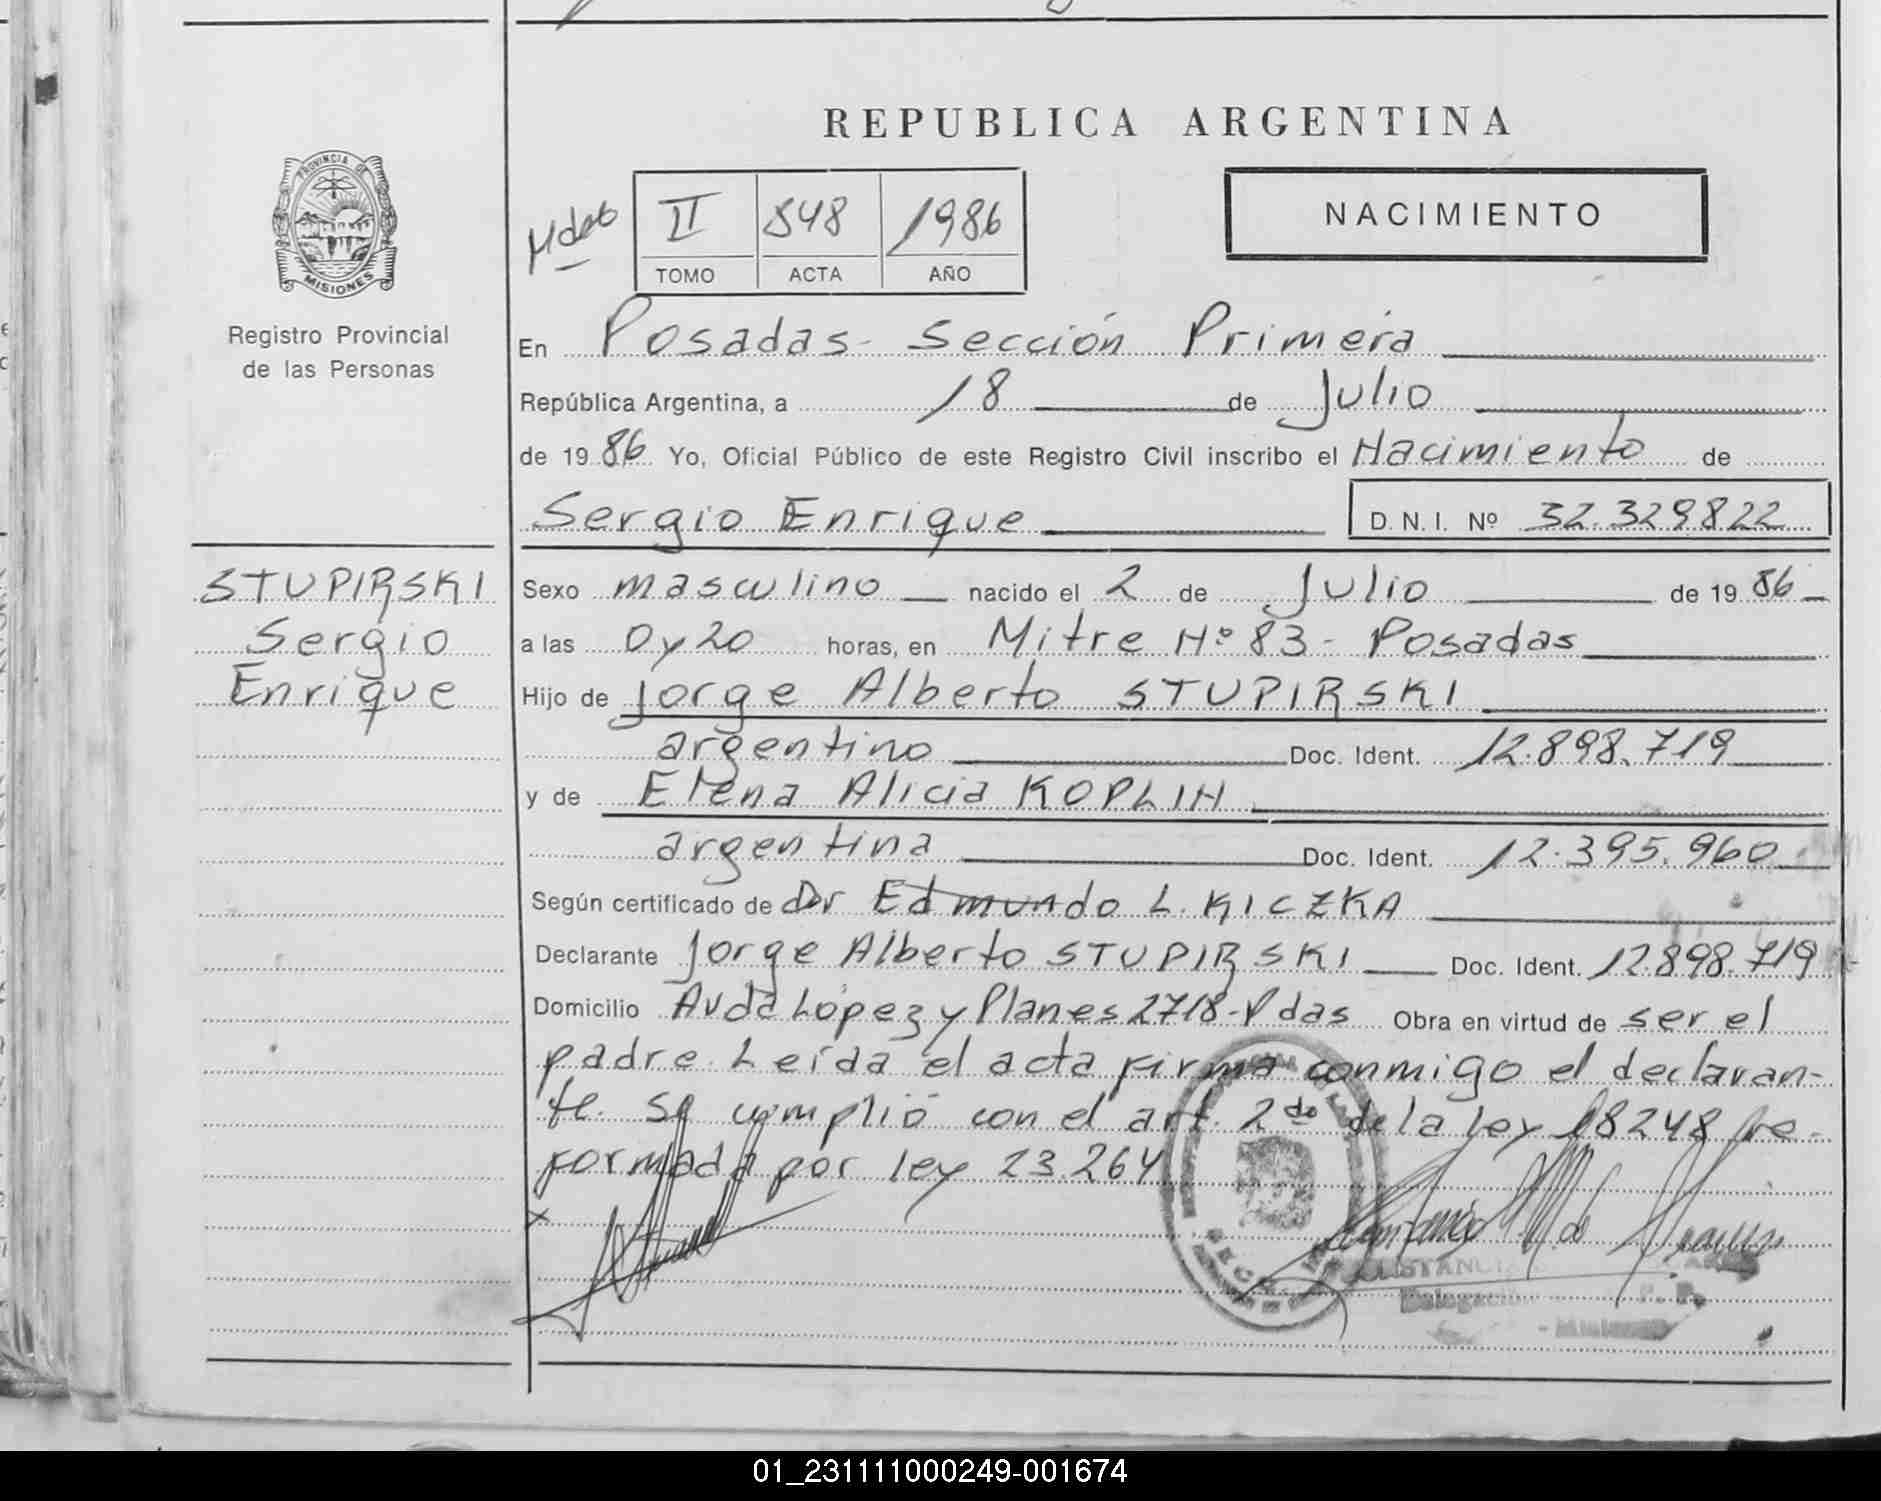 REPUBLICA ARGENTINA
PROVINCIA DE
MISIONES
Registro Provincial
de las Personas
II 548 1986
TOMO ACTA AÑO
NACIMIENTO
En Posadas- Sección Primera
República Argentina, a 18 de Julio
de 1986 Yo, Oficial Público de este Registro Civil inscribo el Nacimiento de
Sergio Enrique D.N.I. Nº 32.329822
STUPIRSKI
Sergio
Enrique
Sexo masculino nacido el 2 de Julio de 1986
a las 0 y 20 horas, en Mitre Nº 83 - Posadas
Hijo de Jorge Alberto STUPIRSKI
argentino Doc. Ident. 12.898.719
y de Elena Alicia KOPLIN
argentina Doc. Ident. 12.395.960
Según certificado de Dr Edmundo L. KICZKA
Declarante Jorge Alberto STUPIRSKI Doc. Ident. 12.898.719
Domicilio Avda López y Planes 2718-Pdas Obra en virtud de ser el
padre. Leída el acta firma conmigo el declaran-
te. Se cumplió con el art. 2do de la ley 18248 re-
formada por ley 23.264
Delegación
01_231111000249-001674